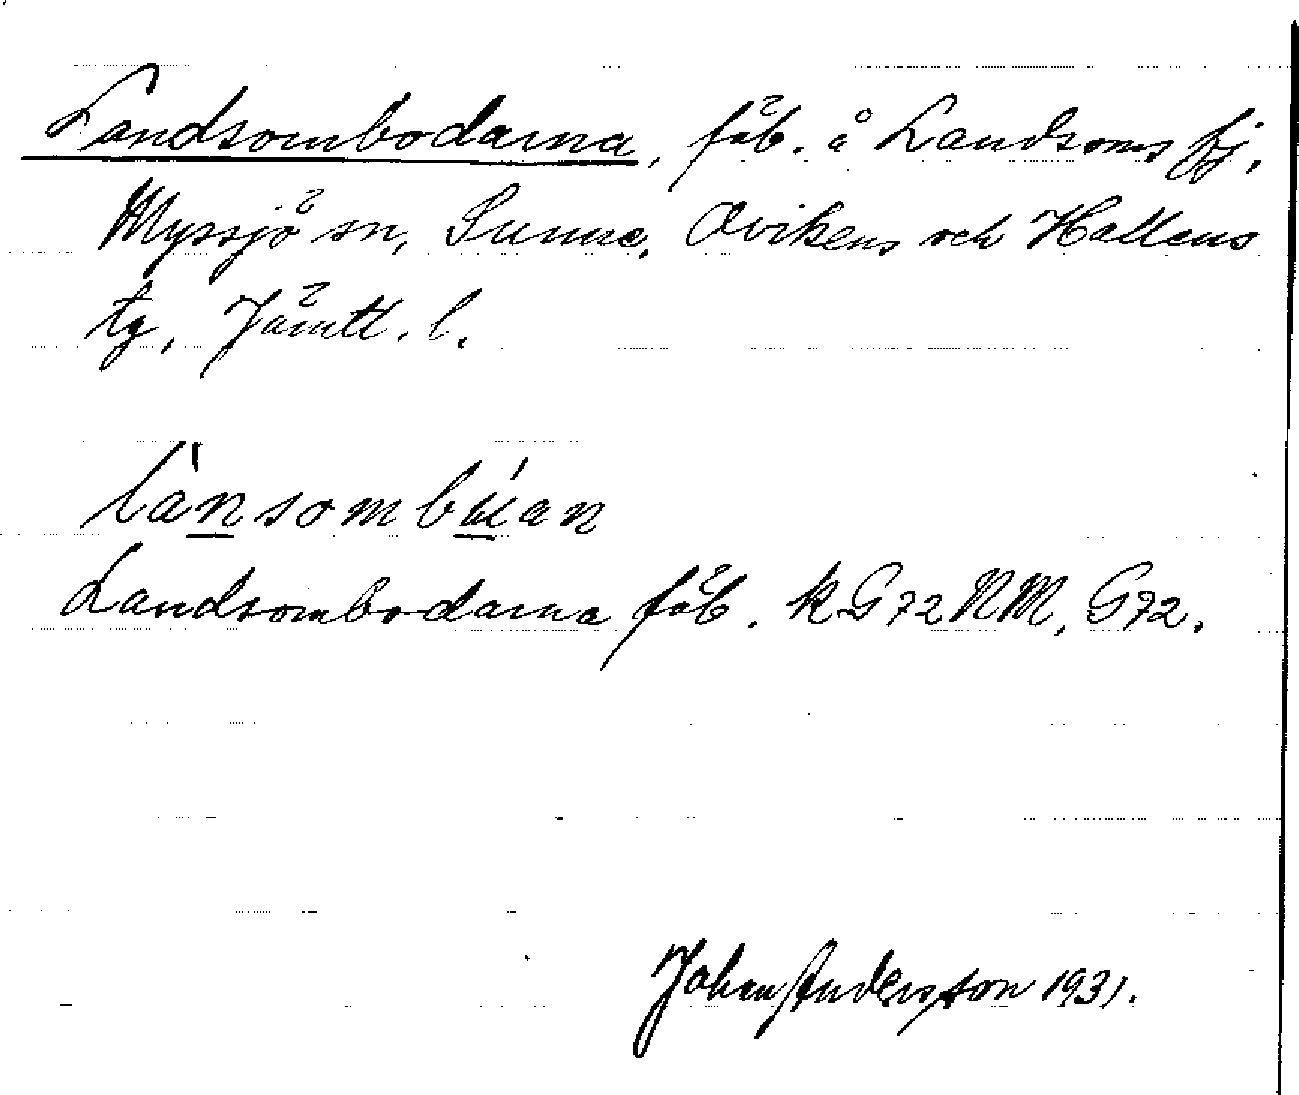 Landsombodarna, fäb. å Landsoms fj,
Myssjö sn, Sunne, Ovikens och Hallens
tg, Jämtl. l.
lànsombúan
Landsombodarna fäb. kG72NM, G72.
Johan Andersson 1931.